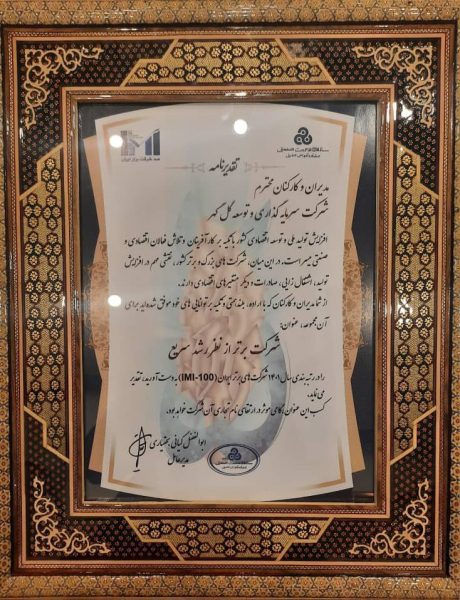 سازمان مدیریت صنعتی
صد شرکت برتر ایران
تقدیرنامه
مدیران و کارکنان محترم
شرکت سرمایه گذاری و توسعه گل گهر
افزایش تولید ملی و توسعه اقتصادی کشور با تکیه بر کارآفرینان و تلاش فعالان اقتصادی و
صنعتی میسر است. در این میان، شرکت های بزرگ و برتر کشور، نقشی مهم در افزایش
تولید، اشتغال زایی، صادرات و دیگر متغیرهای اقتصادی دارند.
از شما مدیران و کارکنان که با اراده، بلندهمتی و تکیه بر توانایی های خود موفق شده‌اید برای
آن مجموعه، عنوان:
شرکت برتر از نظر رشد سریع
را در رتبه بندی سال ۱۴۰۱ شرکت های برتر ایران (IMI-100) به دست آورید، تقدیر
می نماید.
کسب این عنوان، گامی موثر در ارتقای نام تجاری آن شرکت خواهد بود.
ابوالفضل کیانی بختیاری
مدیرعامل